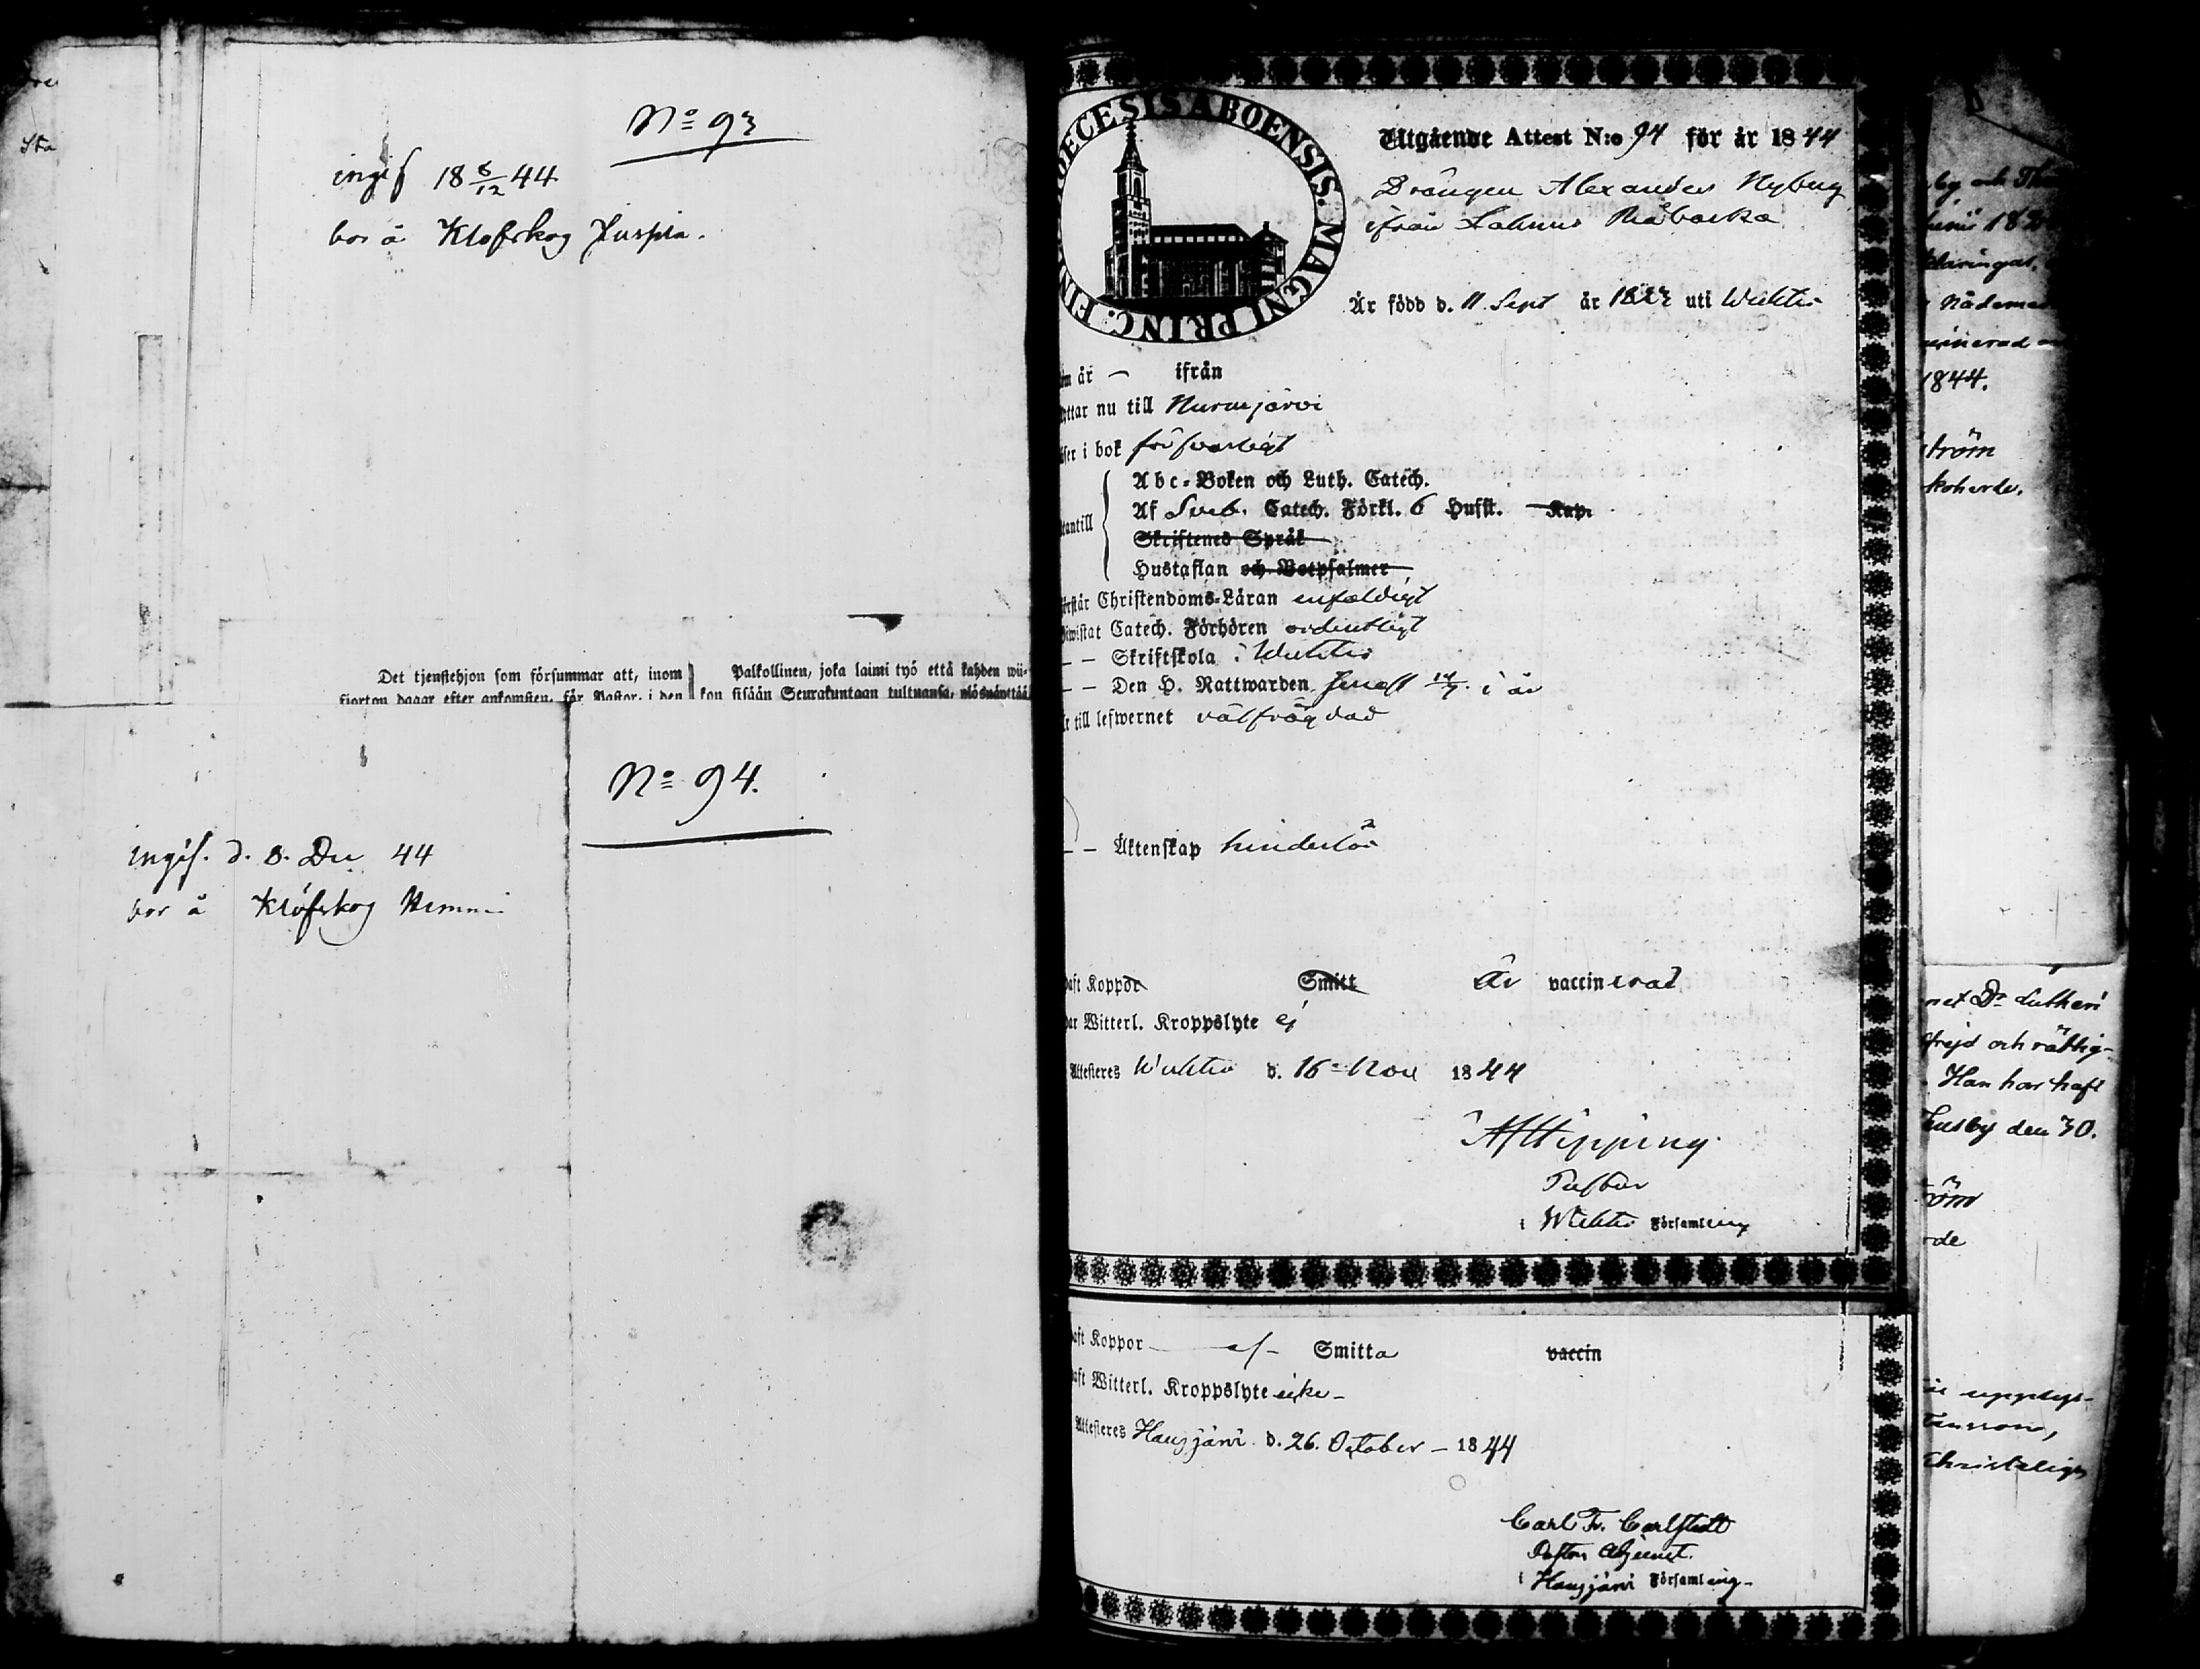 Sta
No 93
ingif 18 8/12 44
bor å Klofskog Juspia.
Det tjenstehjon som försummar att, inom
fjorton dagar efter ankomsten, för Pastor, i den
Palkollinen, joka laimi lyö että kahden wii-
kon sisään Seurakuntaan tultuansa,
No 94.
ingif. d. 8. Dec 44
bor å Klöfskog
DIOECESIS ABOENSIS. MAGNI PRINC. FIN
Utgående Attest N:o 94 för år 1844
Drängen Alexander Nyberg
ifrån Råbacka
Är född d. 11 Sept år uti Wichtis
om år — ifrån
yttar nu till Nurmijärvi
äser i bok försvarligt
Abc-Boken och Luth. Catech.
utantill
Af Sveb. Catech. Förkl. 6 Hufst. Kap.
Skriftenes Språk
Hustaflan och Botpsalmer
örstår Christendoms-Läran enfaldigt
biwistat Catech. Förhören ordentligt
— — Skriftskola i Wichtis
— — Den H. Nattwarden senast i år
r till lefwernet välfrägdad
— — Äktenskap hinderlös
haft Koppor Smitt Är vaccinerad
har Witterl. Kroppslyte ej
Attesteres Wichtis d. 16 Nov 1844
Hipping
Pastor
i Wichtis Församling
haft Koppor — af — Smitta vaccin
haft Witterl. Kroppslyte icke —
Attesteres Hausjärvi d. 26. October — 1844
Carl Fr. Carlstedt
Pastors Adjunct.
i Hausjärvi Församling —
by och
1844.
ström
koherde.
Dr Lutheri
frejd och rättig-
Han har haft
Tusby den 30.
öm
rde